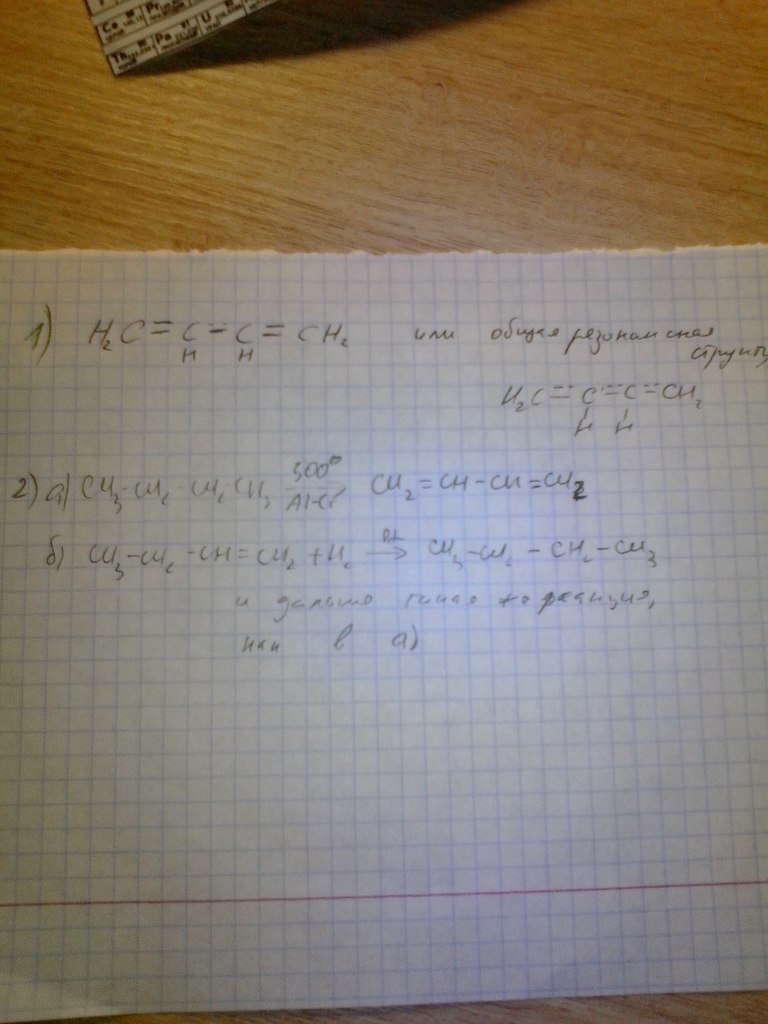 Ce
Pr
Th
Pa
U
1) H₂C = C - C = CH₂ или общая резонансная
H H
структу
H₂C = C = C = CH₂
H H
2) а) CH₃-CH₂-CH₂CH₃ 500° CH₂=CH-CH=CH₂
б) CH₃-CH₂-CH=CH₂+H₂ Pt → CH₃-CH₂-CH₂-CH₃
и дальше такая же реакция,
как в а)